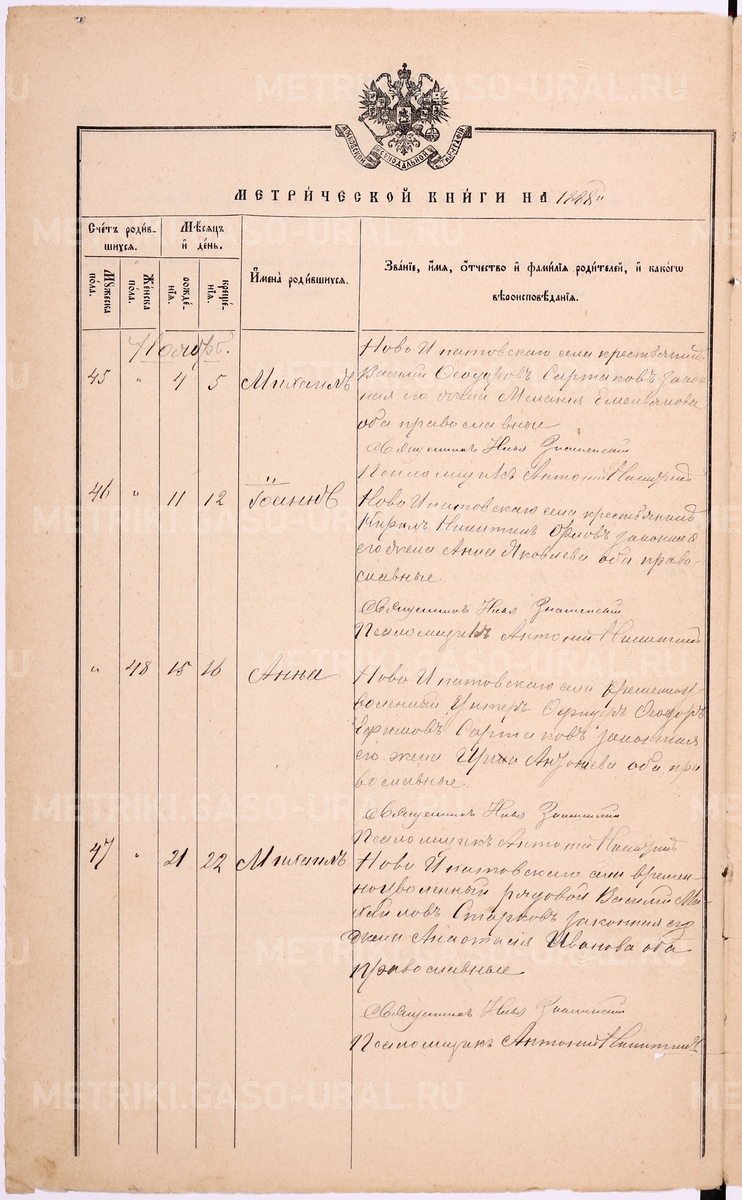 METRIKI.GASO-URAL.RU
МОСКОВСКОЙ СѴНОДАЛЬНОЙ ТИПОГРАФІИ
МЕТРИ́ЧЕСКОЙ КНИ́ГИ НА 1888 г.
Сче́тъ роди́в-
шихся.
Мѣ́сяцъ
и҆ де́нь.
Мꙋ́жеска
по́ла.
Же́нска
по́ла.
рожде́-
нїя.
креще́-
нїя.
И҆мена̀ роди́вшихся.
Зва́нїе, и҆́мя, ѻ҆́тчество и҆ фами́лїя роди́телей, и҆ како́гѡ
вѣроисповѣ́данїя.
Ноябрь.
45 " 4 5 Михаилъ
Ново Ипатовскаго села крестьянинъ
Василій Ѳеодоровъ Сартаковъ закон-
ная его жена Меланія Емельянова
оба православные
Священникъ Илья Знаменскій
Псаломщикъ Антоній Никитинъ
46 " 11 12 Іоаннъ
Ново Ипатовскаго села крестьянинъ
Кирилъ Никитинъ Орловъ законная
его жена Анна Яковлева оба право-
славные.
Священникъ Илья Знаменскій
Псаломщикъ Антоній Никитинъ
" 48 15 16 Анна
Ново Ипатовскаго села временноу-
воленный Унтеръ Офицеръ Ѳеодоръ
Ефимовъ Сартаковъ законная
его жена Ирина Антоніева оба пра
вославные.
Священникъ Илья Знаменскій
Псаломщикъ Антоній Никитинъ
47 " 21 22 Михаилъ
Ново Ипатовскаго села времен-
ноуволенный рядовой Василій Ми-
хайловъ Старковъ законная его
жена Анастасія Иванова оба
православные
Священникъ Илья Знаменскій
Псаломщикъ Антоній Никитинъ